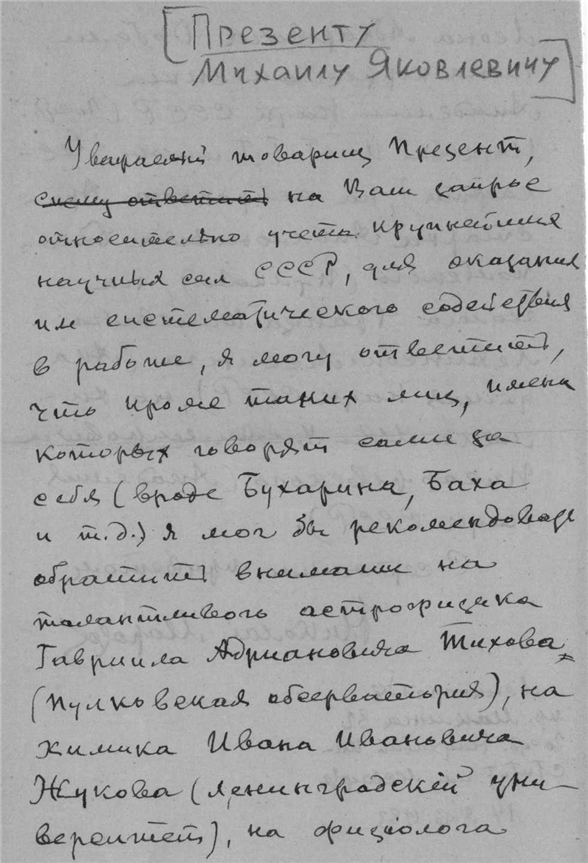 [Презенту
Михаилу Яковлевичу]
Уважаемый товарищ Презент,
спешу ответить на Ваш запрос
относительно учета крупнейших
научных сил СССР, для оказания
им систематического содействия
в работе, я могу ответить,
что кроме таких лиц, имена
которых говорят сами за
себя (вроде Бухарина, Баха
и т.д.) я мог бы рекомендовать
обратить внимание на
талантливого астрофизика
Гавриила Адриановича Тихова
(Пулковская обсерватория), на
химика Ивана Ивановича
Жукова (Ленинградский уни-
верситет), на физиолога